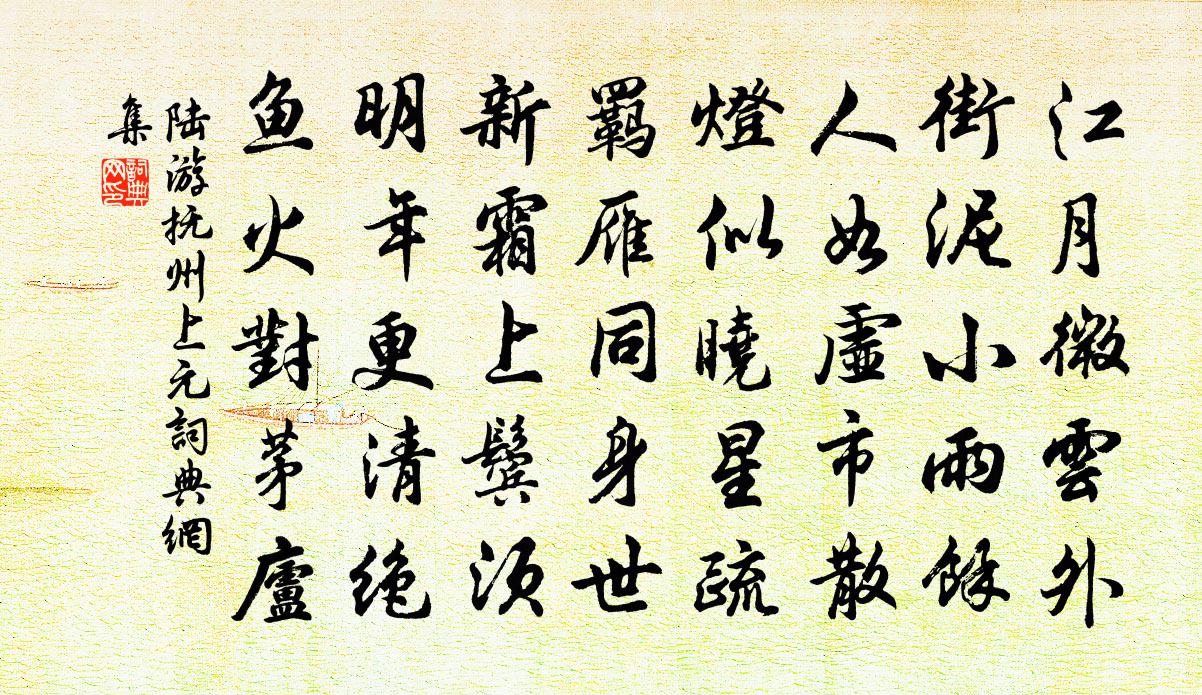 江月微雲外
街泥小雨餘
人如虛市散
燈似曉星疏
羇雁同身世
新霜上鬢須
明年更清绝
魚火對茅廬
陆游抚州上元詞典網
集
詞典
网印